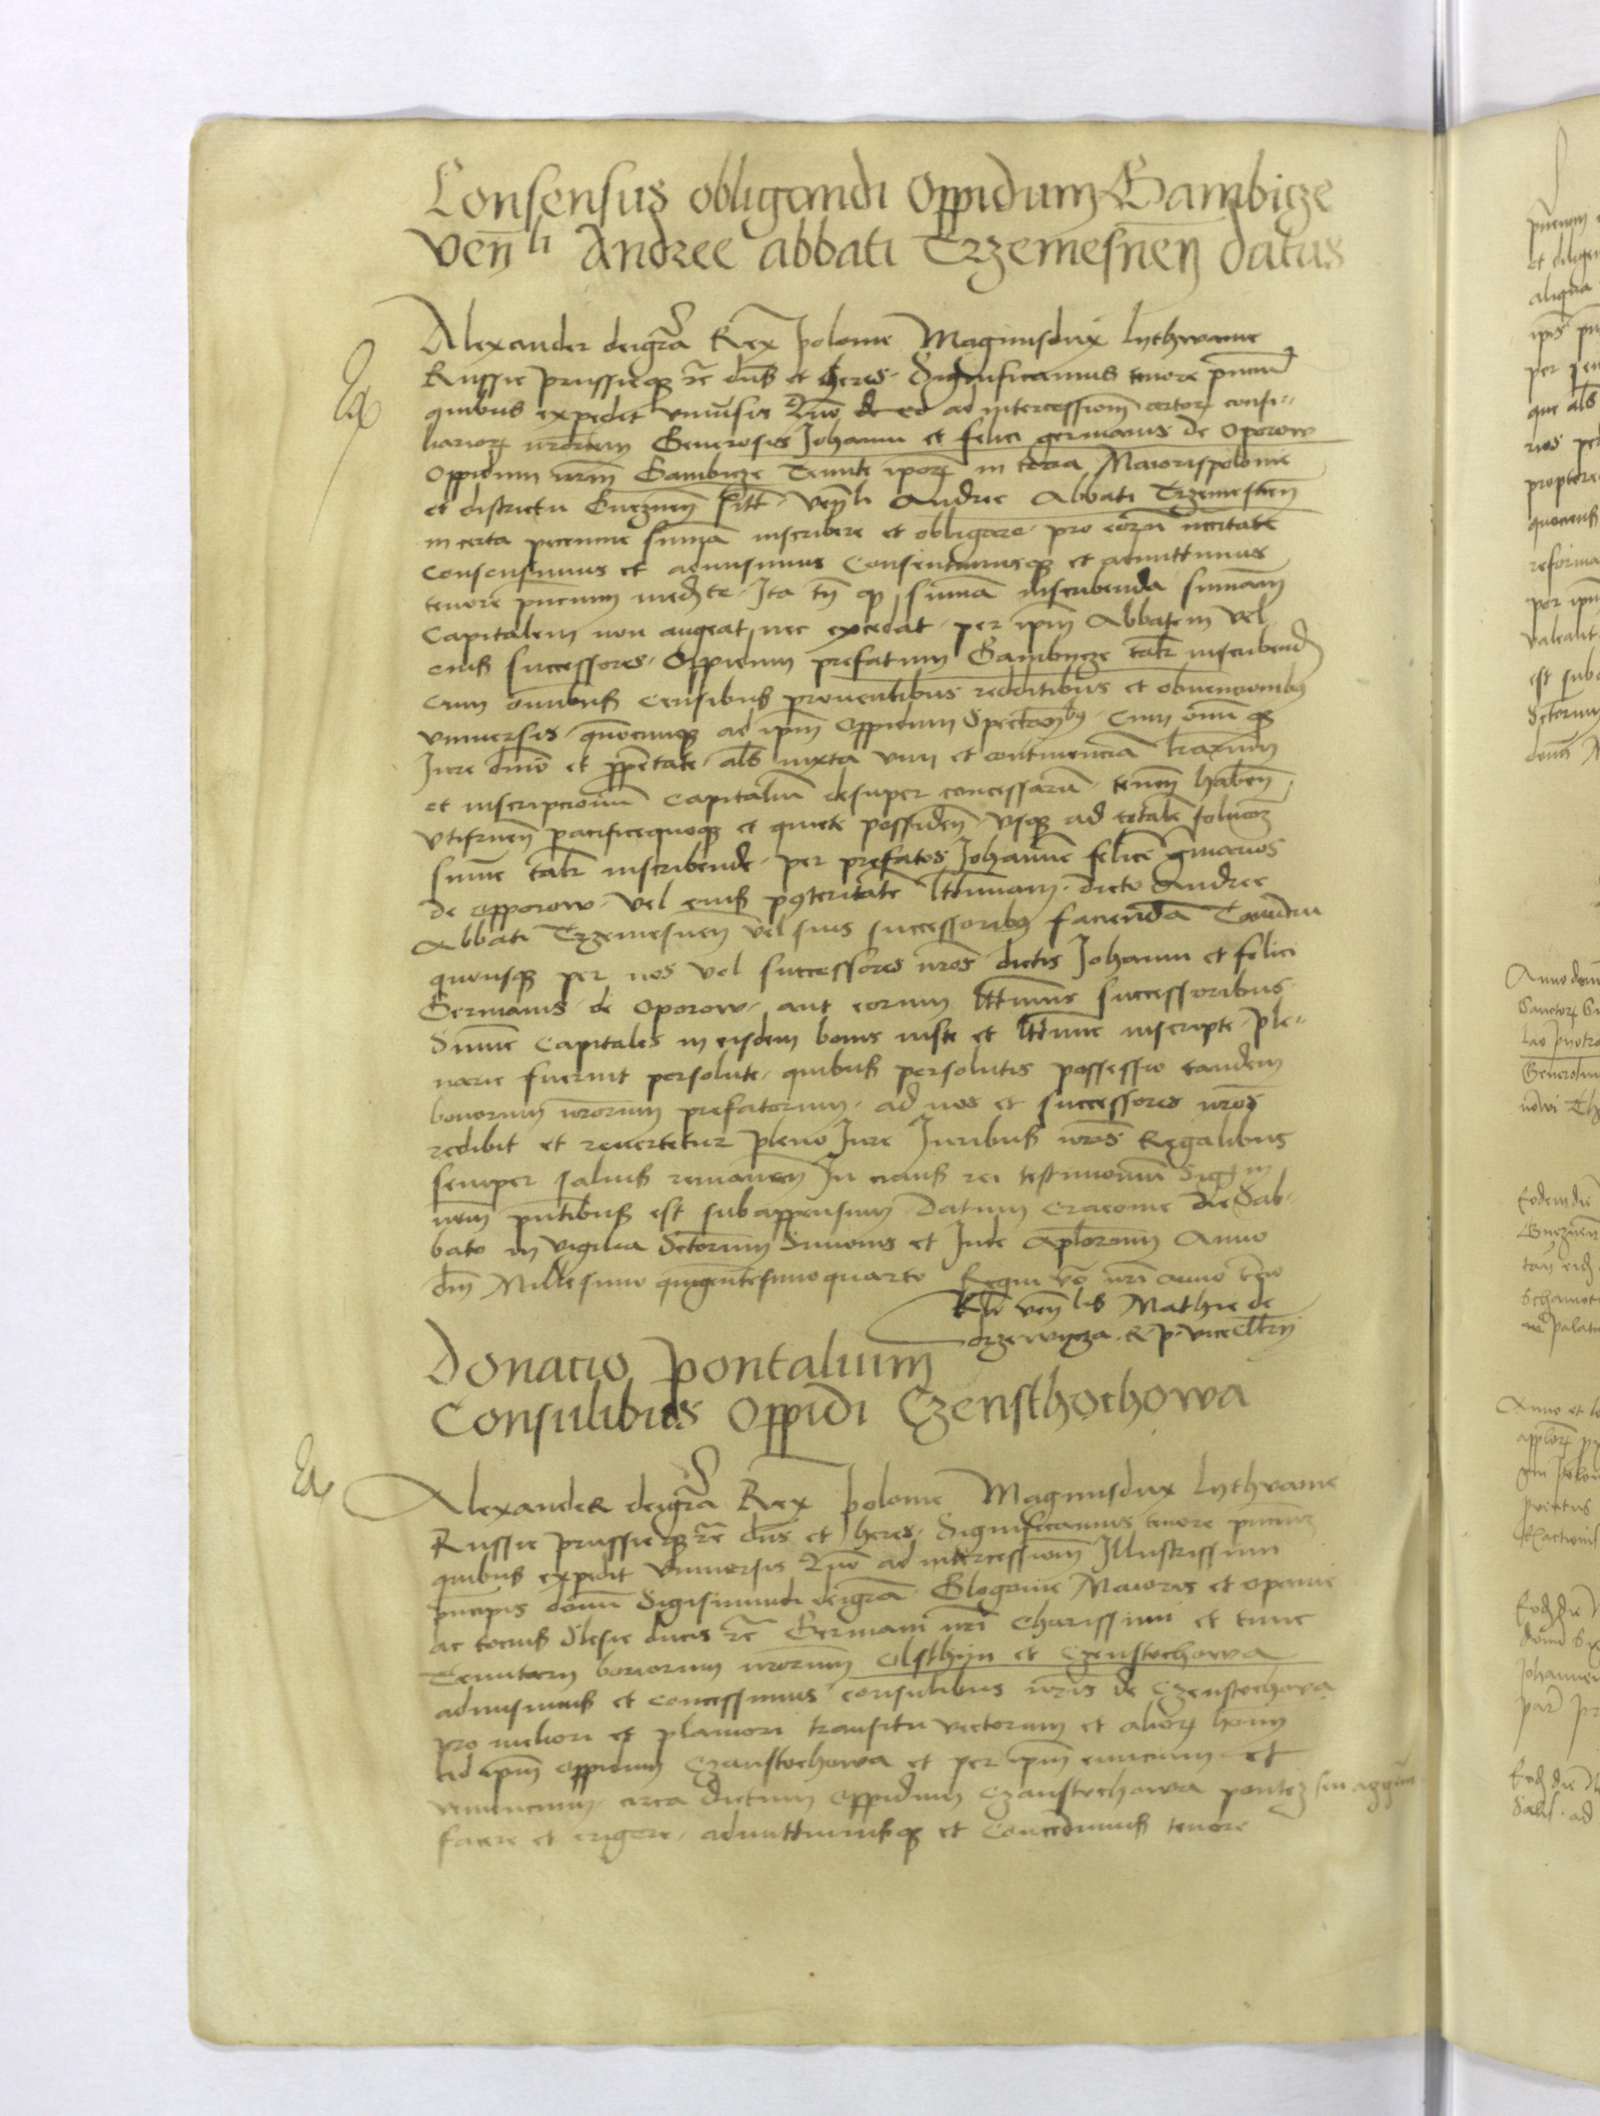 Consensus obligandi Oppidum Gambicze
Venli Andree abbati Trzemesnen datus
Alexander deigra Rex Polonie Magnusdux Lythwanie
Russie prussieq rc dns et heres Significamus tenore pntium
quibus expedit vniuersis Quo ad intercessionem certor consi-
liarior nrorum Generosis Johanni et felici germanis de Oporow
Oppidum nrm Gambicze Tenute ipor in terra Maiorispolonie
et districtu Gneznen sitt Venli Andree Abbati Trzemesnen
in certa pecunie suma inscribere et obligare pro eorum necitate
Consensimus et admisimus Consentimusq et admittimus
tenore pncium mediante Ita tn q suma inscribenda sumam
Capitalem non augeat nec excedat per ipm Abbatem vel
eius successores Oppidum prefatum Gambycze talr inscribend
cum omnibus Censibus prouentibus redditibus et obuencionibus
vniuersis quocunq ad ipm Oppidum Spectanbus Cum omni q
Jure dnio et proprietate als iuxta vim et continencia lrarum
et inscripcionum Capitalium desuper concessarum tenen haben
vtifruen pacificequoq et quiete possiden vsq ad totalem soluconem
sume talr inscribende per prefatos Johannem felicem germanos
de Opporow vel eius posteritatem ltimam dicto Andree
Abbati Trzemesnen vel suis successoribus facienda Tamdiu
quousq per nos vel successores nros dictis Johanni et felici
Germanis de Oporow aut eorum lttimis successoribus
Sume Capitales in eisdem bonis iuste et lttime inscripte ple-
narie fuerint persolute quibus persolutis possessio eandem
bonorum nrorum prefatorum ad nos et successores nros
redibit et reuertetur pleno Jure Juribus nris Regalibus
semper saluis remanen In cuius rei testimonium Sigm
nrm pntibus est subappensum Datum Cracouie die Sab-
bato in vigilia Sctorum Simonis et Jude aplorum Anno
dni Millesimo quingentesimoquarto Regni vo nri anno tercio
Rlo venlis Mathie de
drzewycza R P vicecllrii
Donacio pontalium
Consulibus Oppidi Czensthochowa
Alexander deigra Rex Polonie Magnusdux Lythvanie
Russie prussieq rc dns et heres Significamus tenore pncium
quibus expedit Vniuersis Quo ad intercessionem Illustrissimi
principis domini Sigismundi deigra Glogouie Maioris et Opauie
ac tocius Slesie ducis rc Germani nri Charissimi et tunc
Tenutarii bonorum nrorum Olsthyn et Czenstochowa
admisimus et concessimus consulibus nris de Czenstochowa
pro meliori et planiori transitu vectorum et alior homin
ad ipm oppidum Czanstochowa et per ipm euncium et
veniencium circa dictum oppidum Czanstochowa pontez siu aggerem
facere et erigere admittimusq et Concedimus tenore